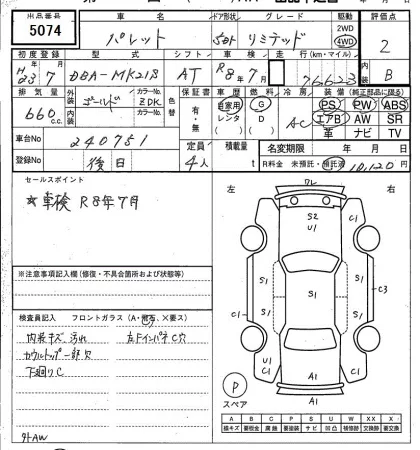 出品番号 車名 ドア形状 グレード 駆動 評価点
5074 パレット 5Dr リミテッド 2WD 4WD 2
初度登録 型式 シフト 車検 走行(km・マイル) 内装
H23/7 DBA-MK21S AT R8/7 76,623 B
排気量 外装 カラーNo. 色替 保証書 車歴 燃料 冷房 装備(純正部品に限る)
660c.c. ゴールド ZDK 有・無 自家用 レンタ G D AC PS PW ABS
内装 カラーNo. エアB AW SR
革 ナビ TV
車台No 240751 定員 積載量 名変期限 年 月 日
登録No 後日 4人 t R料金 未預託・預託済 10,120
セールスポイント
☆車検 R8年7月
左 右
ワレ
S2
U1
C1 C1
S1 S1 S1
C1 C3
U1 C1
A1
A1
P
スペア
※注意事項記入欄(修復・不具合箇所および状態等)
検査員記入 フロントガラス(A・飛石、×要ス)
内装キズ 汚れ 左FインパネC穴
カウルトップ一部欠
下廻りC
外AW
A B C P S U W X XX
線キズ 要板金 腐蝕 要塗装 サビ 凹凸 補修跡 要交換 交換跡